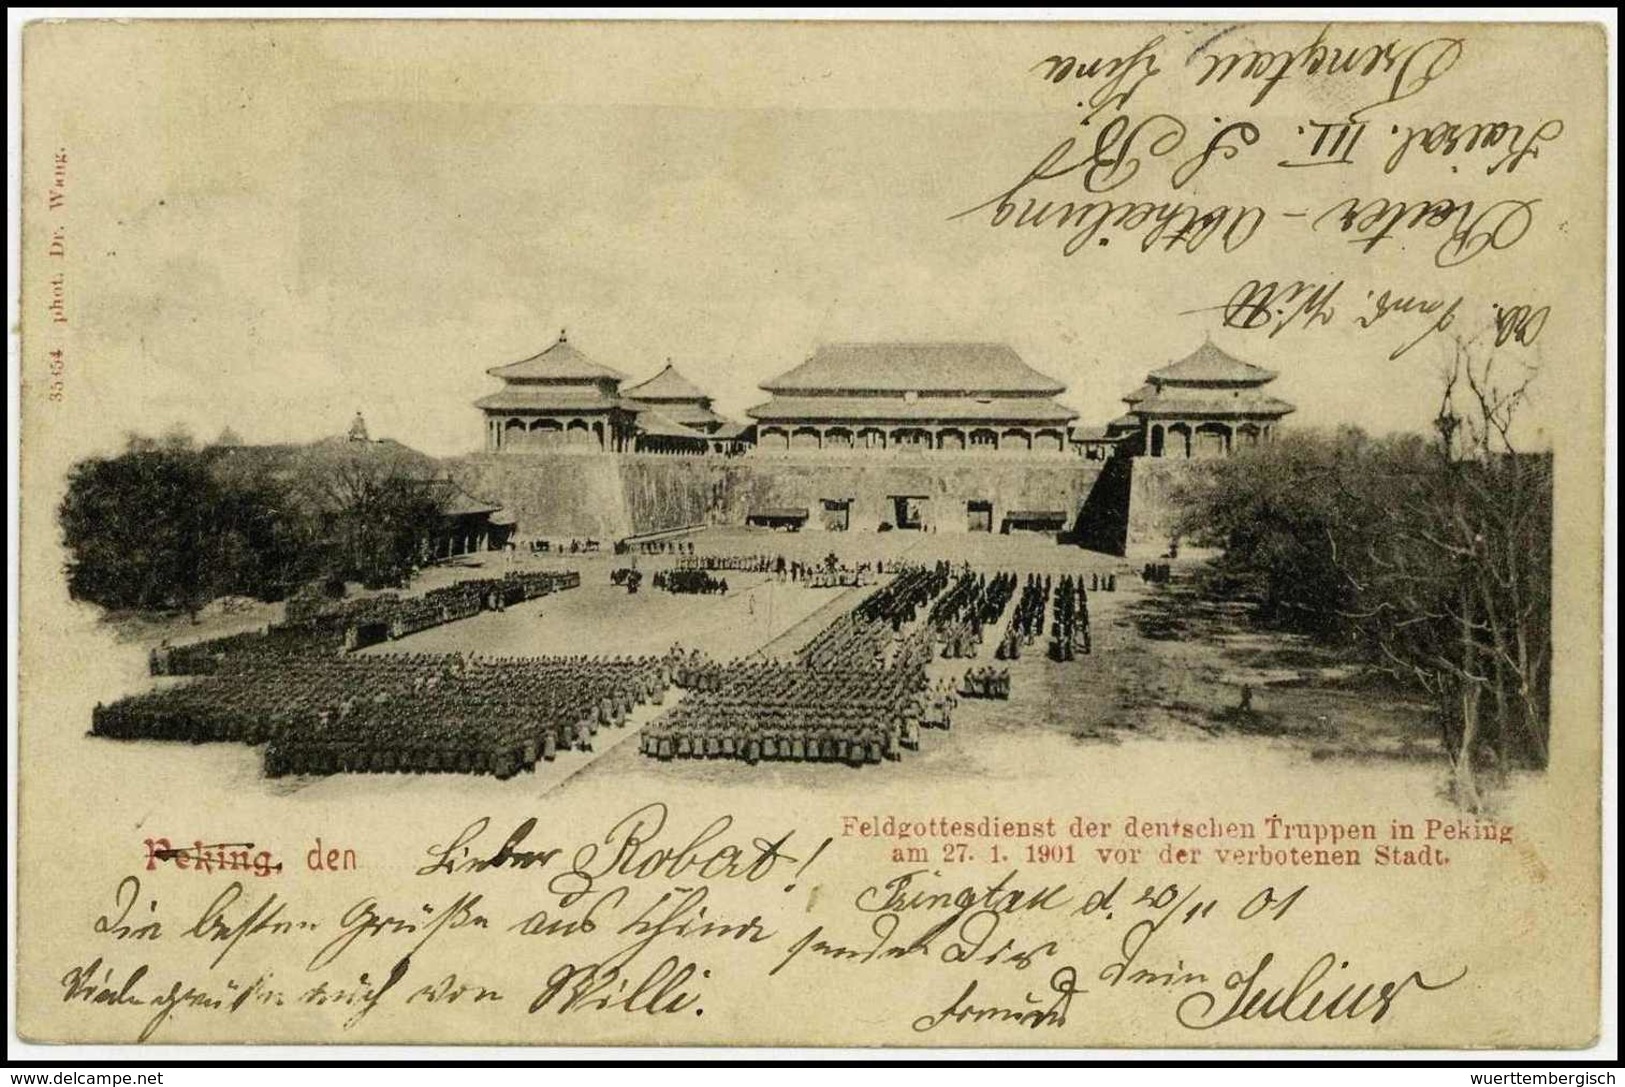 35354 phot. Dr. Wang.
Abs. Witt
Reiter-Abtheilung
Kaiserl. III. S. B.
Tsingtau China
Feldgottesdienst der deutschen Truppen in Peking
am 27. 1. 1901 vor der verbotenen Stadt.
Peking, den
Lieber Robert!
Tsingtau d. 20/11 01
Die besten Grüße aus China sendet Dir Dein
Viele Grüße auch von Willi. Freund Julius
wuerttembergisch